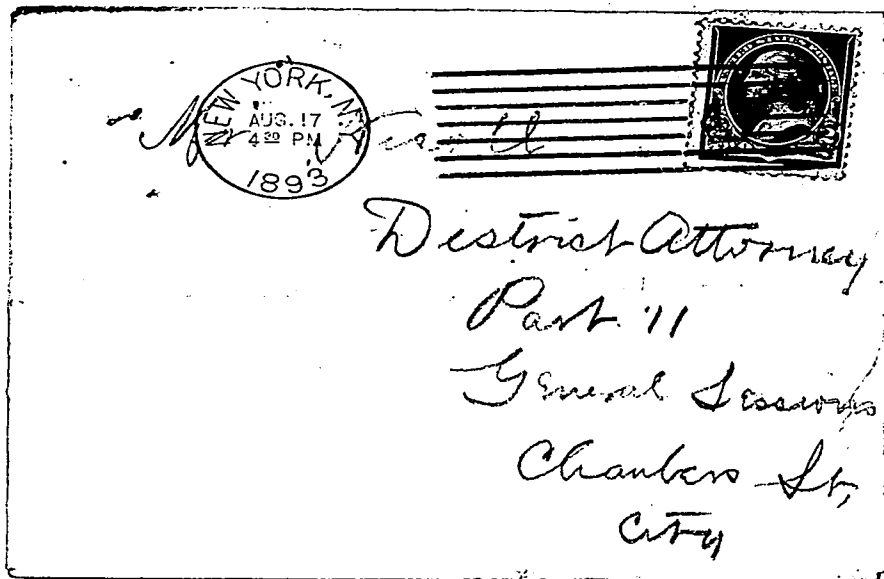 NEW YORK, N.Y.
AUG. 17
4 30 PM
1893
District Attorney
Part 11
General Sessions
Chambers St,
City